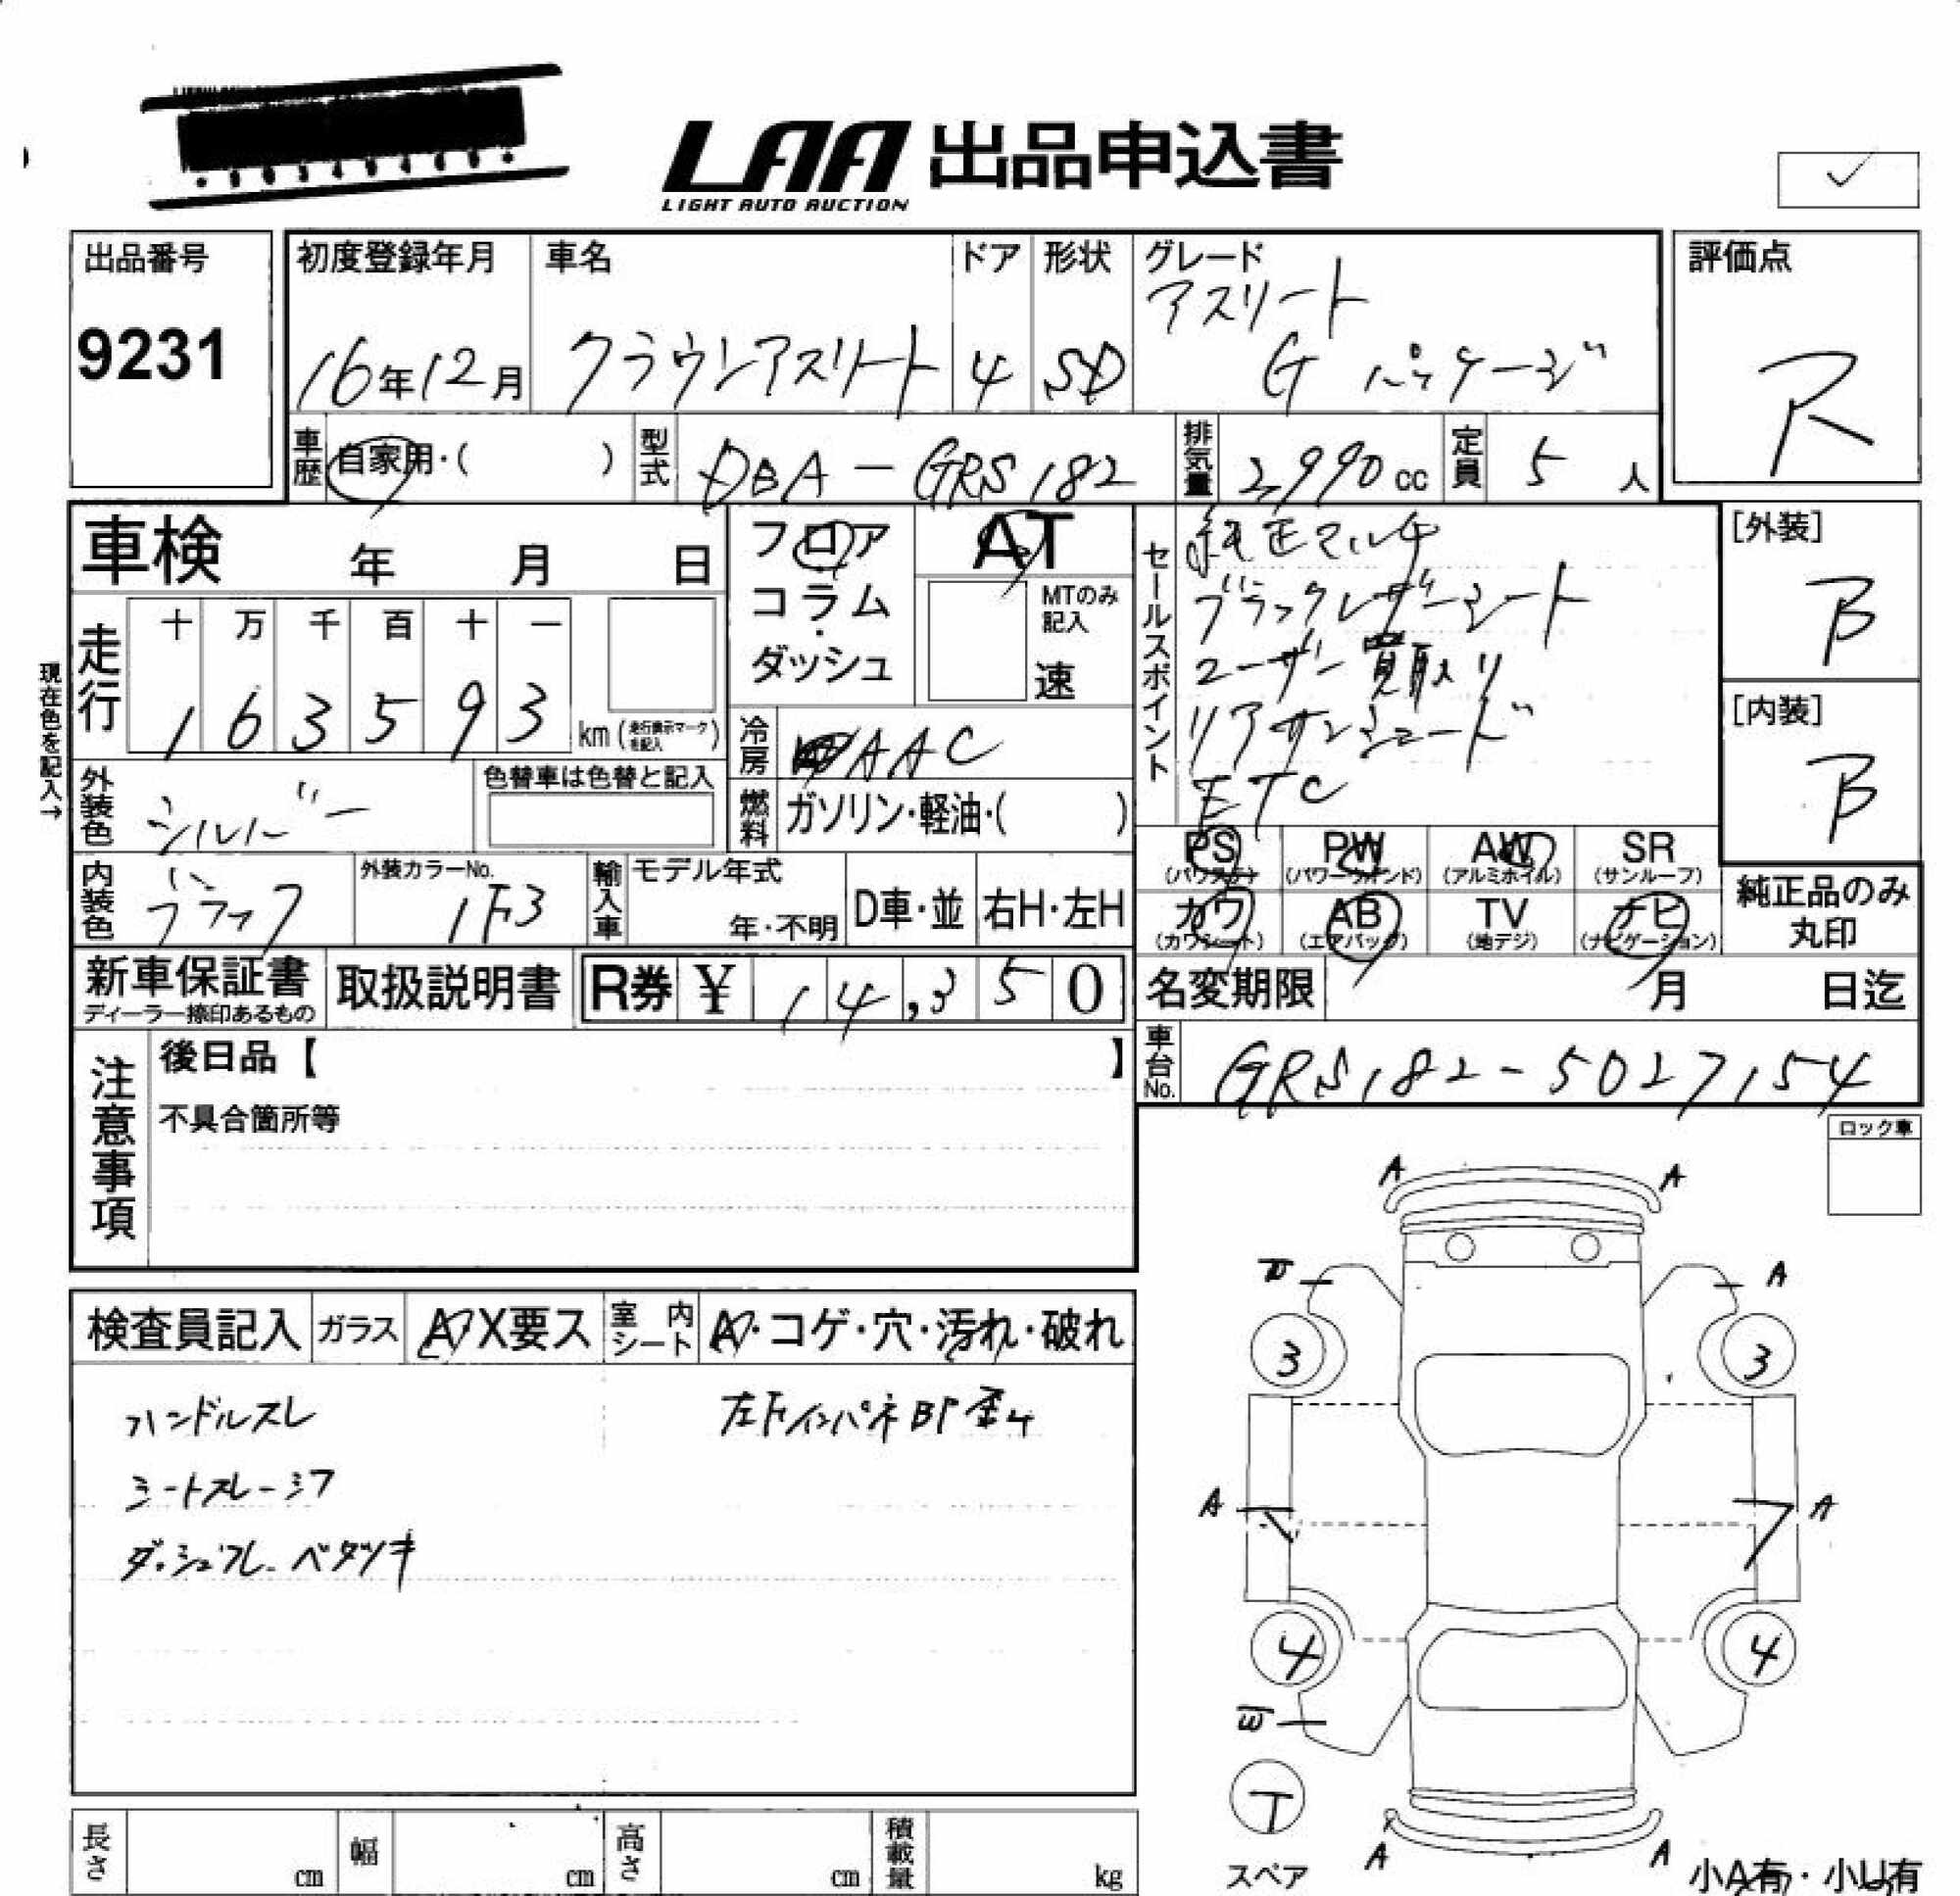 LAA 出品申込書
LIGHT AUTO AUCTION
出品番号
9231
初度登録年月
16年12月
車名
クラウンアスリート
ドア
4
形状
SD
グレード
アスリート
G パッケージ
評価点
R
車歴
自家用・( )
型式
DBA-GRS182
排気量
2,990cc
定員
5人
車検 年 月 日
フロア・コラム・ダッシュ
AT
MTのみ記入
速
セールスポイント
純正マルチ
ブラックレザーシート
ユーザー買取り
リアサンシェード
ETC
[外装]
B
[内装]
B
現在色を記入→
走行
十 万 千 百 十 一
1 6 3 5 9 3
km(走行表示マークを記入)
冷房
AAC
外装色
シルバー
色替車は色替と記入
燃料
ガソリン・軽油・( )
PS (パワステ)
PW (パワーウインド)
AW (アルミホイル)
SR (サンルーフ)
カワ (カワシート)
AB (エアバッグ)
TV (地デジ)
ナビ (ナビゲーション)
純正品のみ丸印
内装色
ブラック
外装カラーNo.
1F3
輸入車
モデル年式
年・不明
D車・並
右H・左H
新車保証書
ディーラー捺印あるもの
取扱説明書
R券 ¥ 14,350
名変期限 月 日迄
車台No.
GRS182-5027154
注意事項
後日品【 】
不具合箇所等
ロック車
検査員記入
ガラス
A・X要ス
室内シート
A・コゲ・穴・汚れ・破れ
ハンドルスレ
シートスレ・シワ
ダッシュフレ・ベタツキ
左Fインパネ
A A
A
3 3
A A
4 4
T
スペア
A A
小A有・小U有
長さ cm
幅 cm
高さ cm
積載量 kg